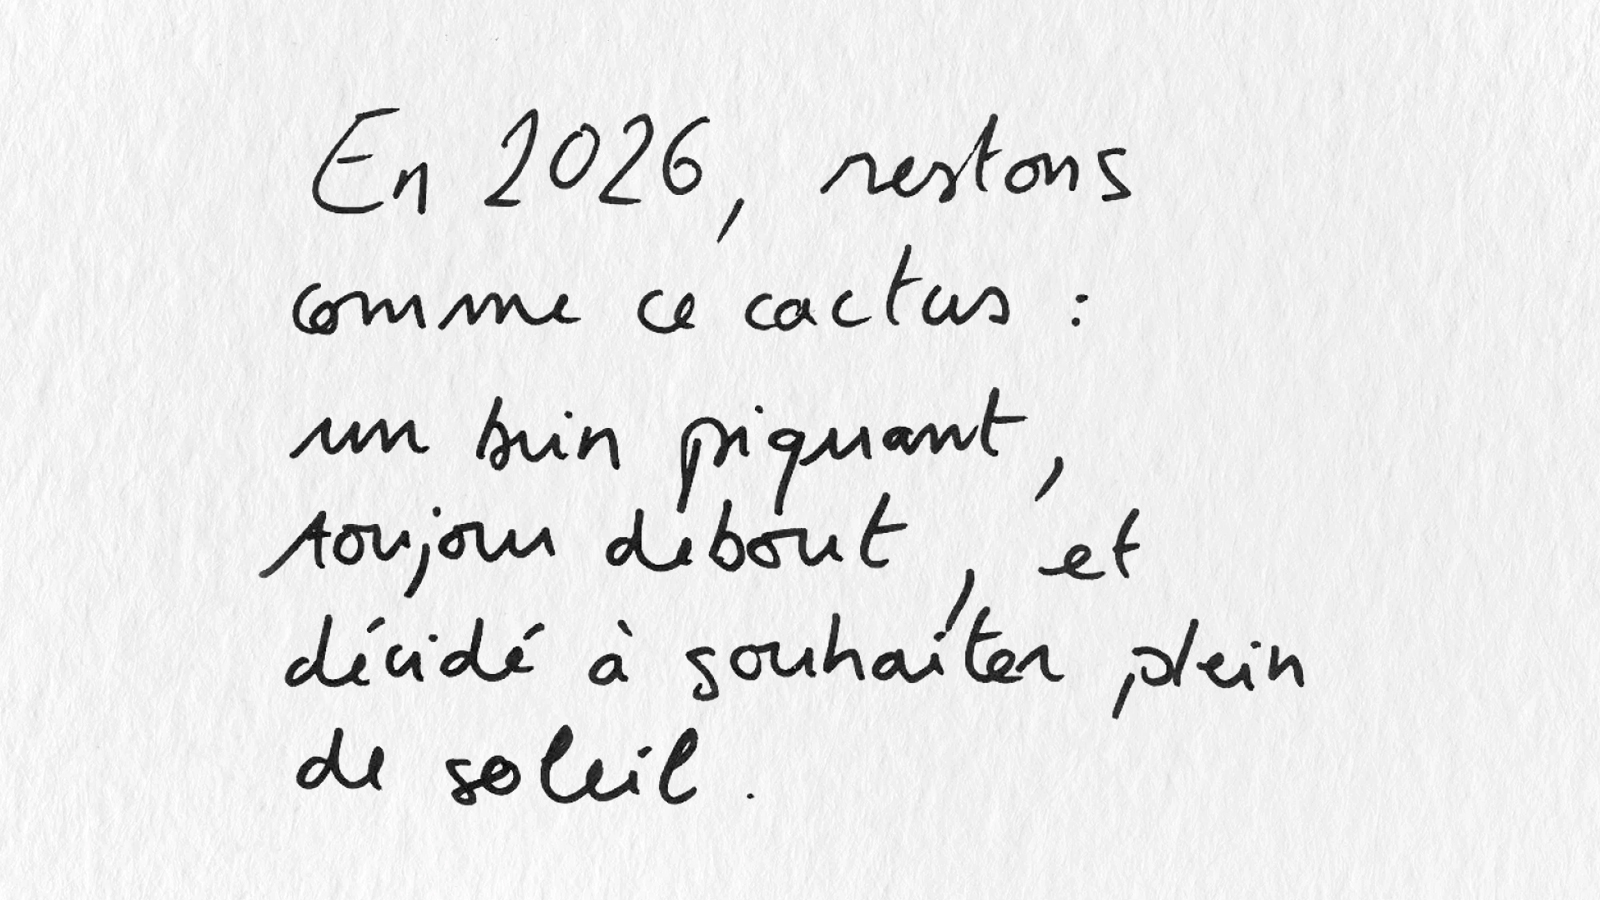 En 2026, restons
comme ce cactus :
un brin piquant,
toujours debout, et
décidé à souhaiter plein
de soleil.